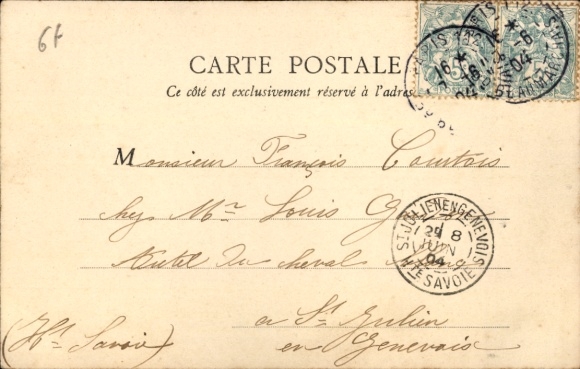 6f
CARTE POSTALE
Ce côté est exclusivement réservé à l'adres
Monsieur François Courtois
chez Mr Louis
Hôtel du cheval
à St Julien
(Hte Savoie) en Genevois
ST JULIEN EN GENEVOIS
8
JUIN
04
HTE SAVOIE
PARIS
04